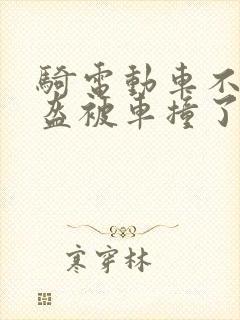 騎電動車不
盔被車撞了
寒穿林